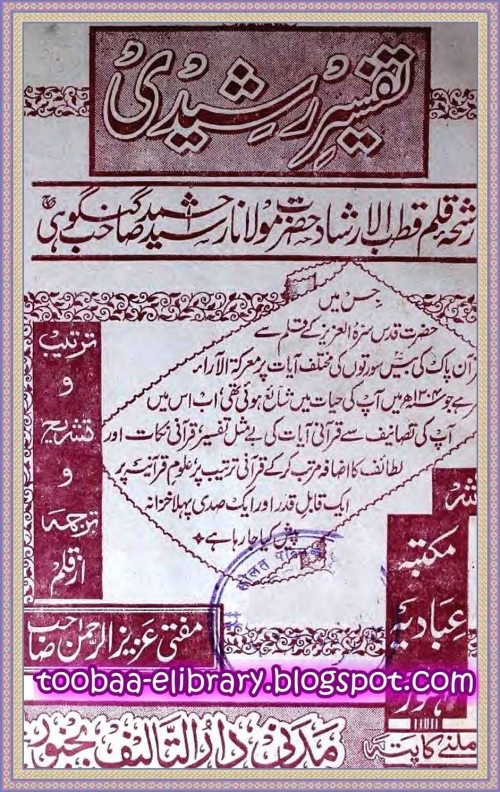 تفسیرِ رشیدی
رشحۂ قلم قطب الارشاد حضرت مولانا رشید احمد صاحب گنگوہیؒ
جس میں
حضرت قدس سرہٗ العزیز کے قلم سے
قرآن پاک کی بیس سورتوں کی مختلف آیات پر معرکۃ الآراء
ہے جو میں آپ کی حیات میں شائع ہوئی تھی اب اس میں
آپ کی تصانیف سے قرآنی آیات کی بے مثل تفسیر، قرآنی نکات اور
لطائف کا اضافہ مرتب کر کے قرآنی ترتیب پر علومِ قرآنیہ پر
ایک قابلِ قدر اور ایک صدی پہلا خزانہ
پیش کیا جا رہا ہے
ترتیب
و
تشریح
و
ترجمہ
از قلم
مفتی عزیز الرحمن صاحب
مکتبہ
عبادیہ
لاہور
toobaa-elibrary.blogspot.com
ملنے کا پتہ
مدنی دار التالیف بجنور